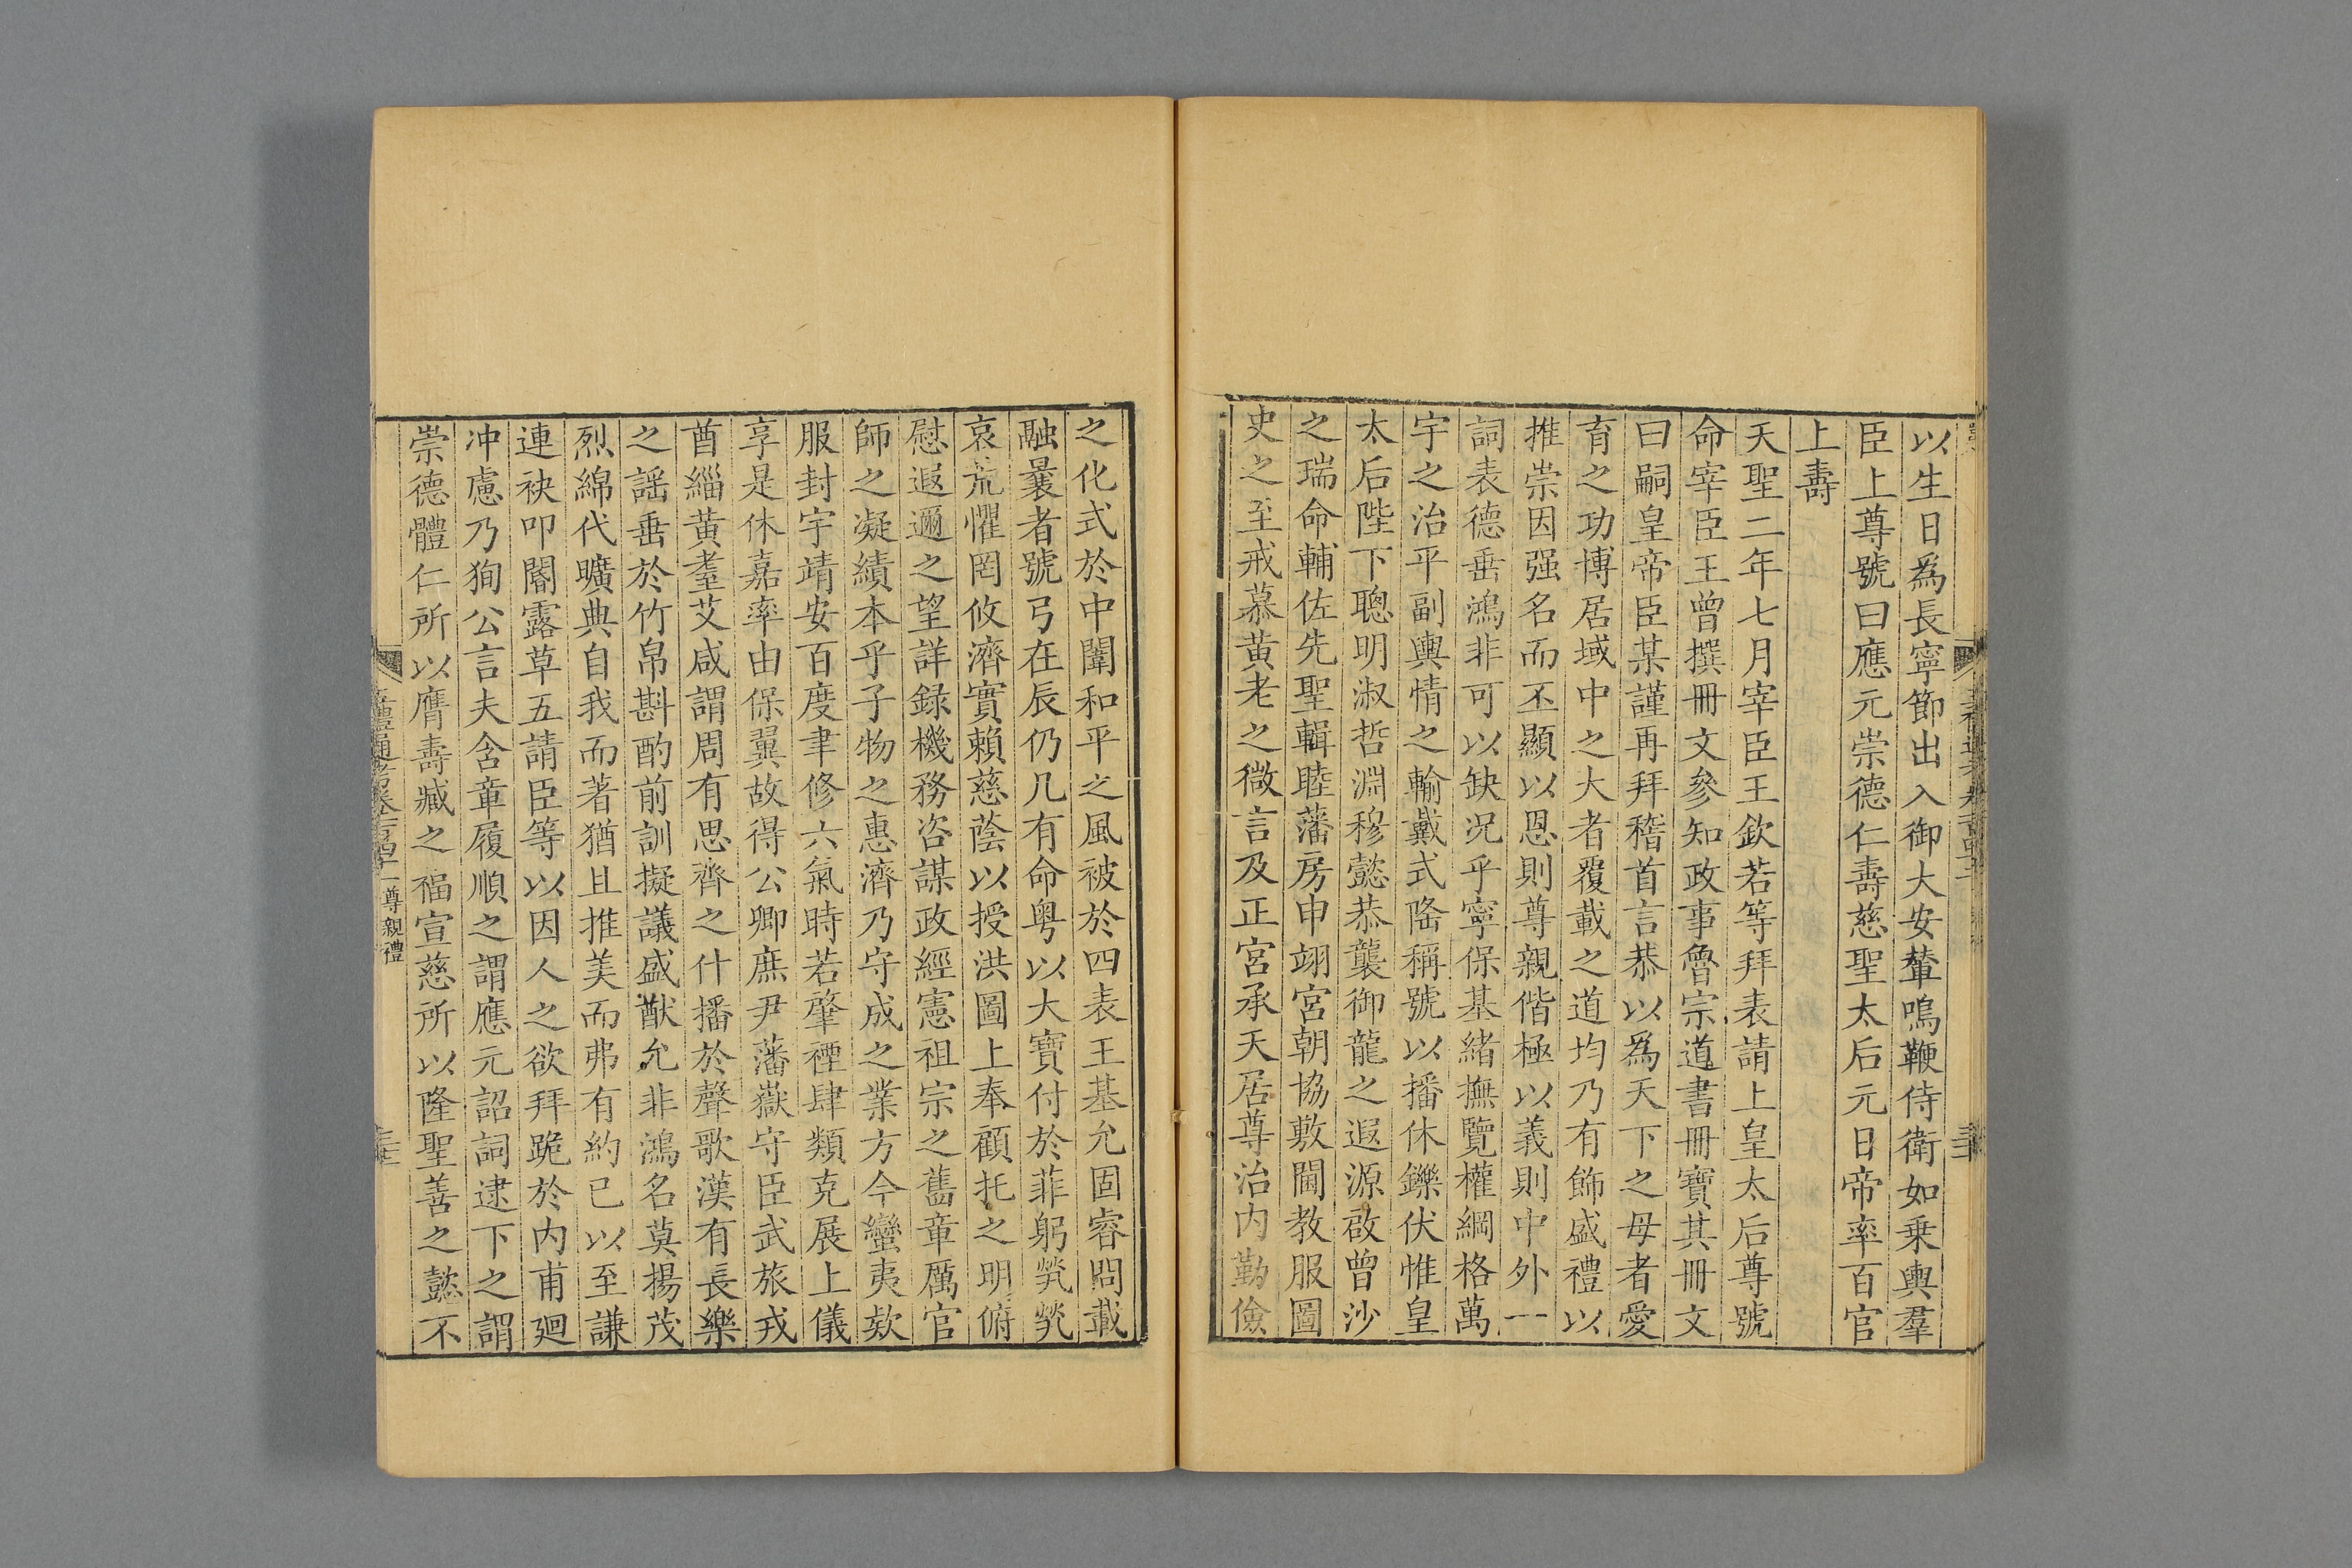 以生日爲長寧節出入御大安輦鳴鞭侍衛如乗輿羣
臣上尊號曰應元崇德仁壽慈聖太后元日帝率百官
上壽
天聖二年七月宰臣王欽若等拜表請上皇太后尊號
命宰臣王曾撰冊文參知政事魯宗道書冊寶其冊文
曰嗣皇帝臣某謹再拜稽首言恭以爲天下之母者愛
育之功博居域中之大者覆載之道均乃有飾盛禮以
推崇因强名而丕顯以恩則尊親偕極以義則中外一
詞表德垂鴻非可以缺况乎寧保基緒撫覽權綱格萬
宇之治平副輿情之輸戴式隆稱號以播休鑠伏惟皇
太后陛下聰明淑哲淵穆懿恭襲御龍之遐源啟曾沙
之瑞命輔佐先聖輯睦藩房申翊宮朝協敷閫教服圖
史之至戒慕黃老之微言及正宮承天居尊治内勤儉
之化式於中闈和平之風被於四表王基允固睿問載
融曩者號弓在辰仍几有命粤以大寶付於菲躬煢煢
哀荒懼罔攸濟實賴慈蔭以授洪圖上奉顧托之明俯
慰遐邇之望詳録機務咨謀政經憲祖宗之舊章厲官
師之凝績本乎子物之惠濟乃守成之業方今蠻夷欵
服封宇靖安百度聿修六氣時若肇禋肆類克展上儀
享是休嘉率由保翼故得公卿庶尹藩嶽守臣武旅戎
酋緇黄耋艾咸謂周有思齊之什播於聲歌漢有長樂
之謡垂於竹帛斟酌前訓擬議盛猷允非鴻名莫揚茂
烈綿代曠典自我而著猶且推美而弗有約已以至謙
連袂叩閽露草五請臣等以因人之欲拜跪於内甫廻
冲慮乃狥公言夫含章履順之謂應元詔詞逮下之謂
崇德體仁所以膺壽臧之福宣慈所以隆聖善之懿不
尊親禮